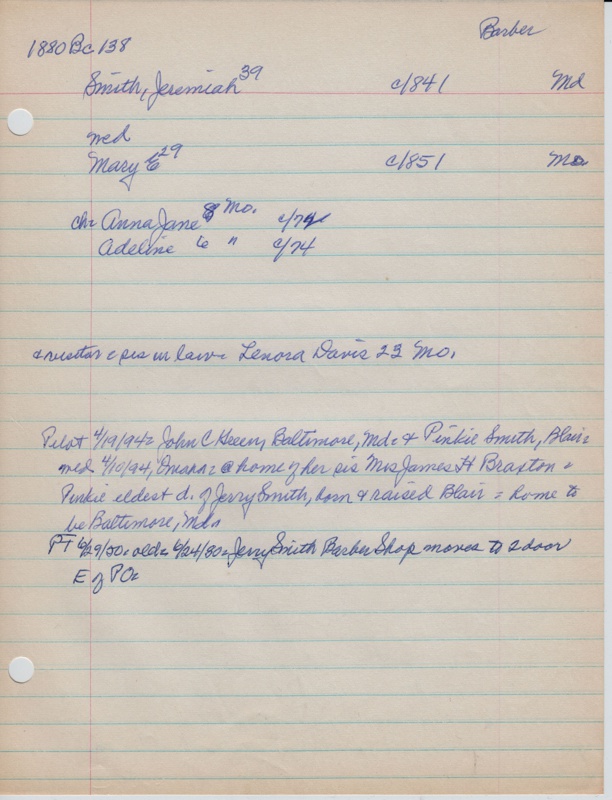 Barber
1880 Bc 138
Smith, Jeremiah 39 c/841 Md
med
Mary E 29 c/851 Mo
ch= Anna Jane 8 Mo. c/72
Adeline 6 " c/74
& visitor = sis in law = Lenora Davis 23 Mo.
Pilot 4/19/94= John C Baltimore, Md= & Pinkie Smith, Blair=
med 4/10/94, Omaha= @ home of her sis Mrs James H Braxton =
Pinkie eldest d. of Jerry Smith, born & raised Blair = home to
be Baltimore, Md=
PT old= 6/24/80= Jerry Smith Barber Shop moves to 2 door
E of PO=